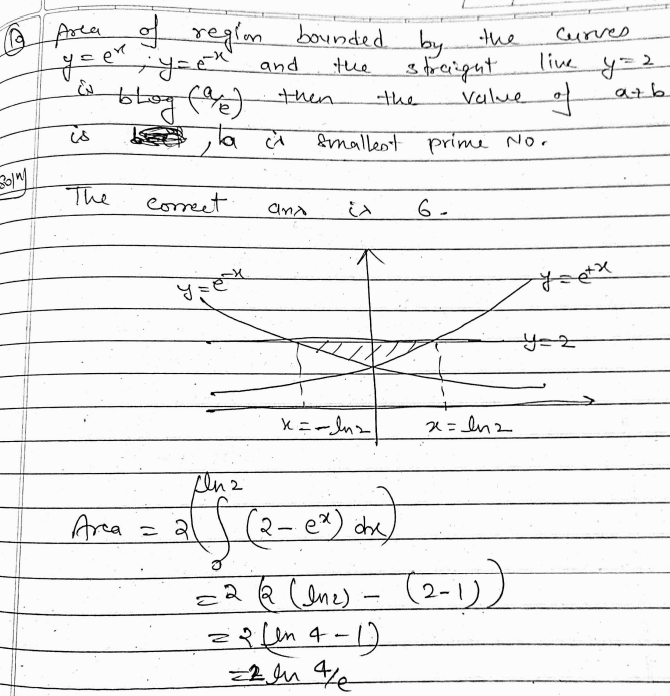 Q Area of region bounded by the curves
y = e^x ; y = e^-x and the straight line y = 2
is b log (a/e) then the value of a+b
is , b is smallest prime No.
Soln
The correct ans is 6.
y = e^-x
y = e^+x
y = 2
x = -ln2
x = ln2
Area = 2 ( ∫_0^ln2 (2 - e^x) dx )
= 2 (2 (ln2) - (2-1))
= 2 (ln 4 - 1)
= 2 ln 4/e